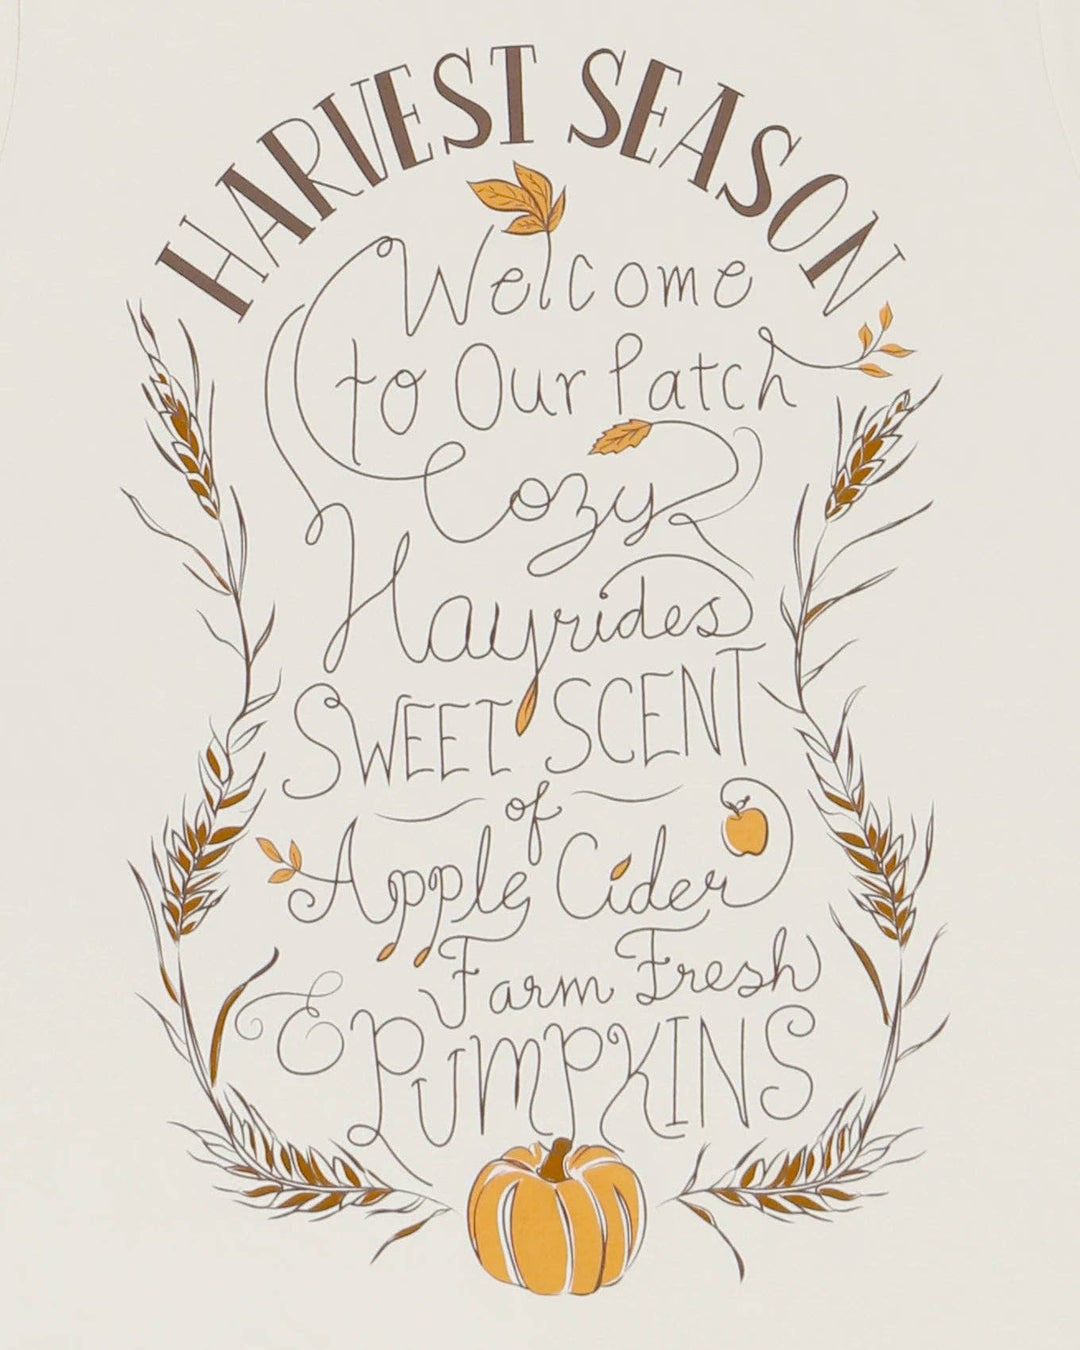 HARVEST SEASON
Welcome
to Our Patch
Cozy
Hayrides
SWEET SCENT
of
Apple Cider
Farm Fresh
& PUMPKINS